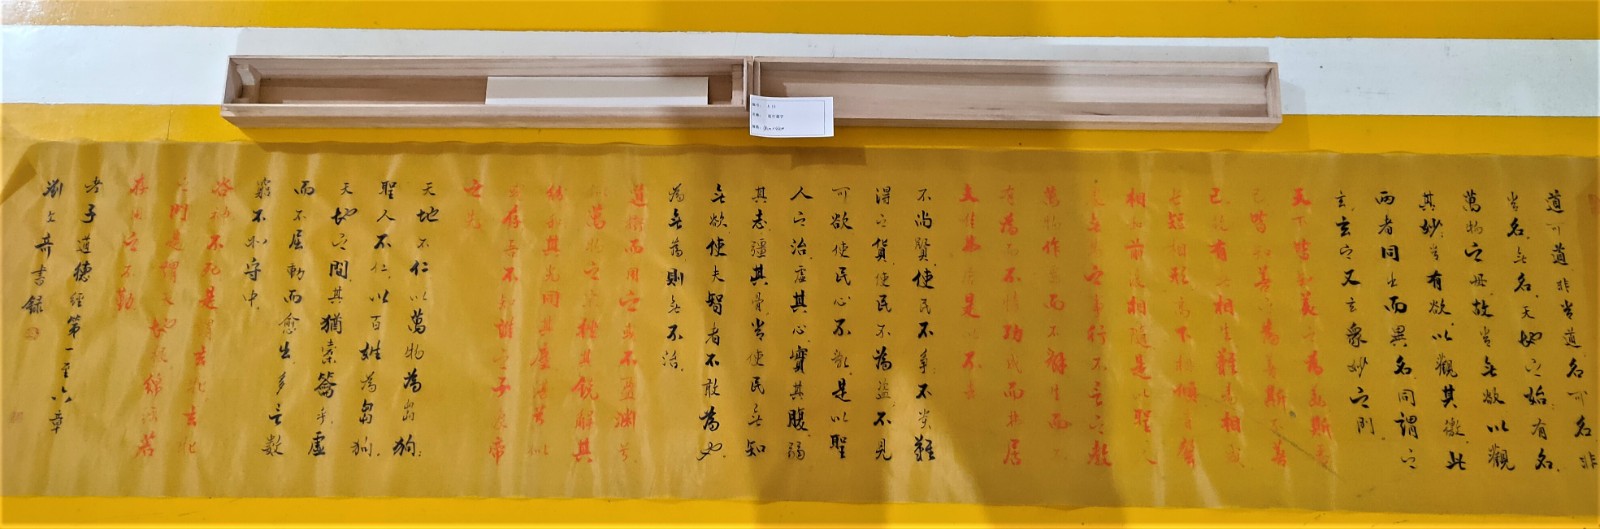 道可道非常道名可名非
常名無名天地之始有名
萬物之母故常無欲以觀
其妙常有欲以觀其徼此
兩者同出而異名同謂之
玄玄之又玄衆妙之門
天下皆知美之為美斯惡
已皆知善之為善斯不善
已故有無相生難易相成
長短相形高下相傾音聲
相和前後相隨是以聖人
處無為之事行不言之教
萬物作焉而不辭生而不
有為而不恃功成而弗居
夫惟弗居是以不去
不尚賢使民不爭不貴難
得之貨使民不為盜不見
可欲使民心不亂是以聖
人之治虛其心實其腹弱
其志彊其骨常使民無知
無欲使夫智者不敢為也
為無為則無不治
道沖而用之或不盈淵兮
似萬物之宗挫其銳解其
紛和其光同其塵湛兮似
若存吾不知誰之子象帝
之先
天地不仁以萬物為芻狗
聖人不仁以百姓為芻狗
天地之間其猶橐籥乎虛
而不屈動而愈出多言數
窮不如守中
谷神不死是謂玄牝玄牝
之門是謂天地根綿綿若
存用之不勤
老子道德經第一至六章
劉文奇書錄